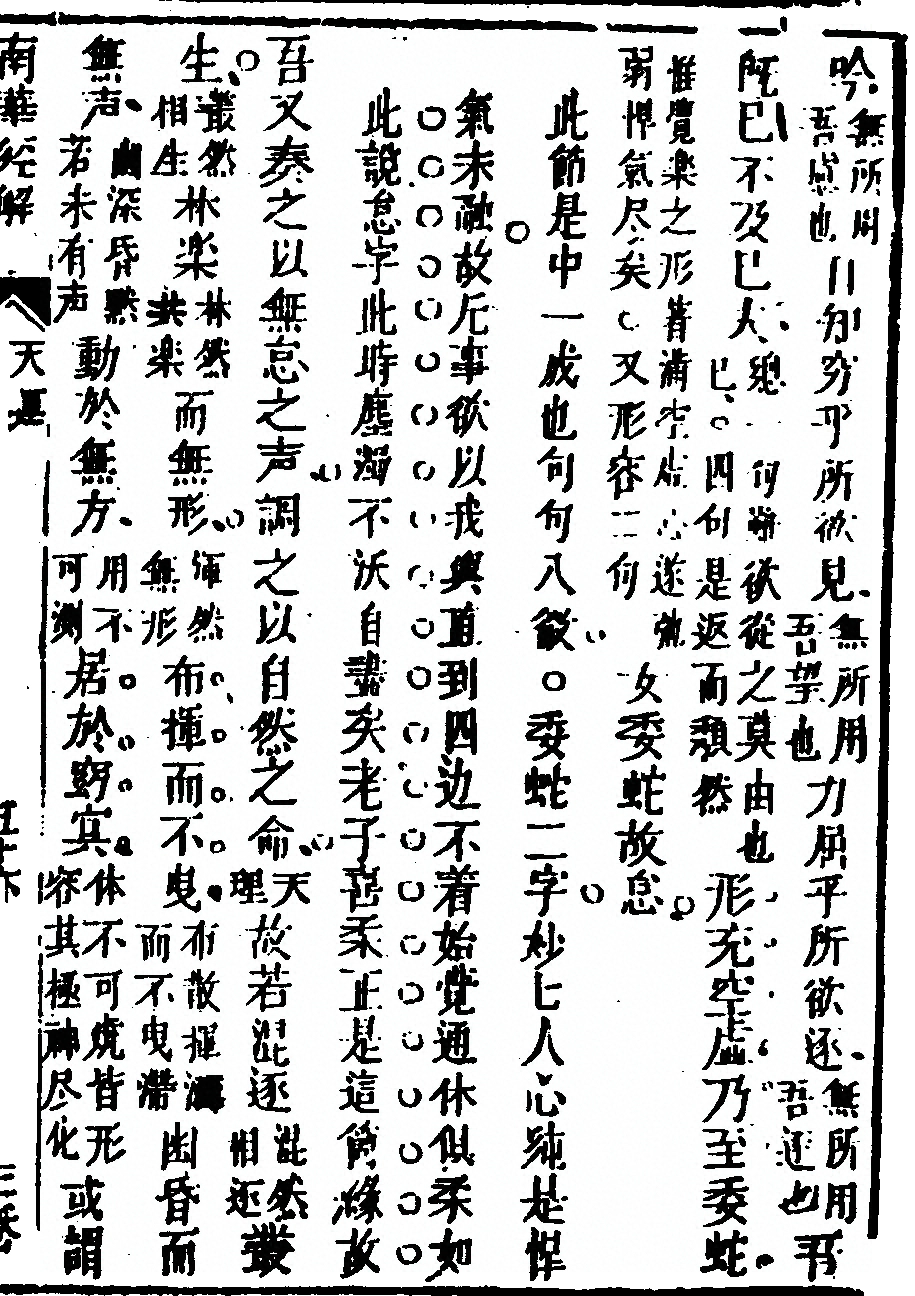 吟無所用吾慮也目知窮乎所欲見無所用吾望也力屈乎所欲逐無所用吾逐也吾
既已不及已夫總何嘗欲從之莫由也已四句是返而頽然形充空虛乃至委蛇
惟覺楽之形著滿空虛心遂弱悍氣尽矣又形容二句女委蛇故怠
此節是中一成也句句入微委蛇二字妙亡人心純是悍
氣未融故凡事欲以我與直到四边不着始覚通休似柔如
此說怠字此時塵濁不沃自盡矣老子善柔正是這箇緣故
吾又奏之以無怠之声調之以自然之命天理故若混逐混然相逐叢
生叢然相生林楽林然共楽而無形渾然無形布揮而不曳布散揮灑而不曳滯幽昏而
無声幽深昏黙若未有声動於無方用不可測居於窈冥体不可窺皆形容其極神尽化或謂
南華経解 天運 三